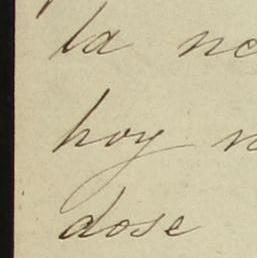 la
hoy
dose